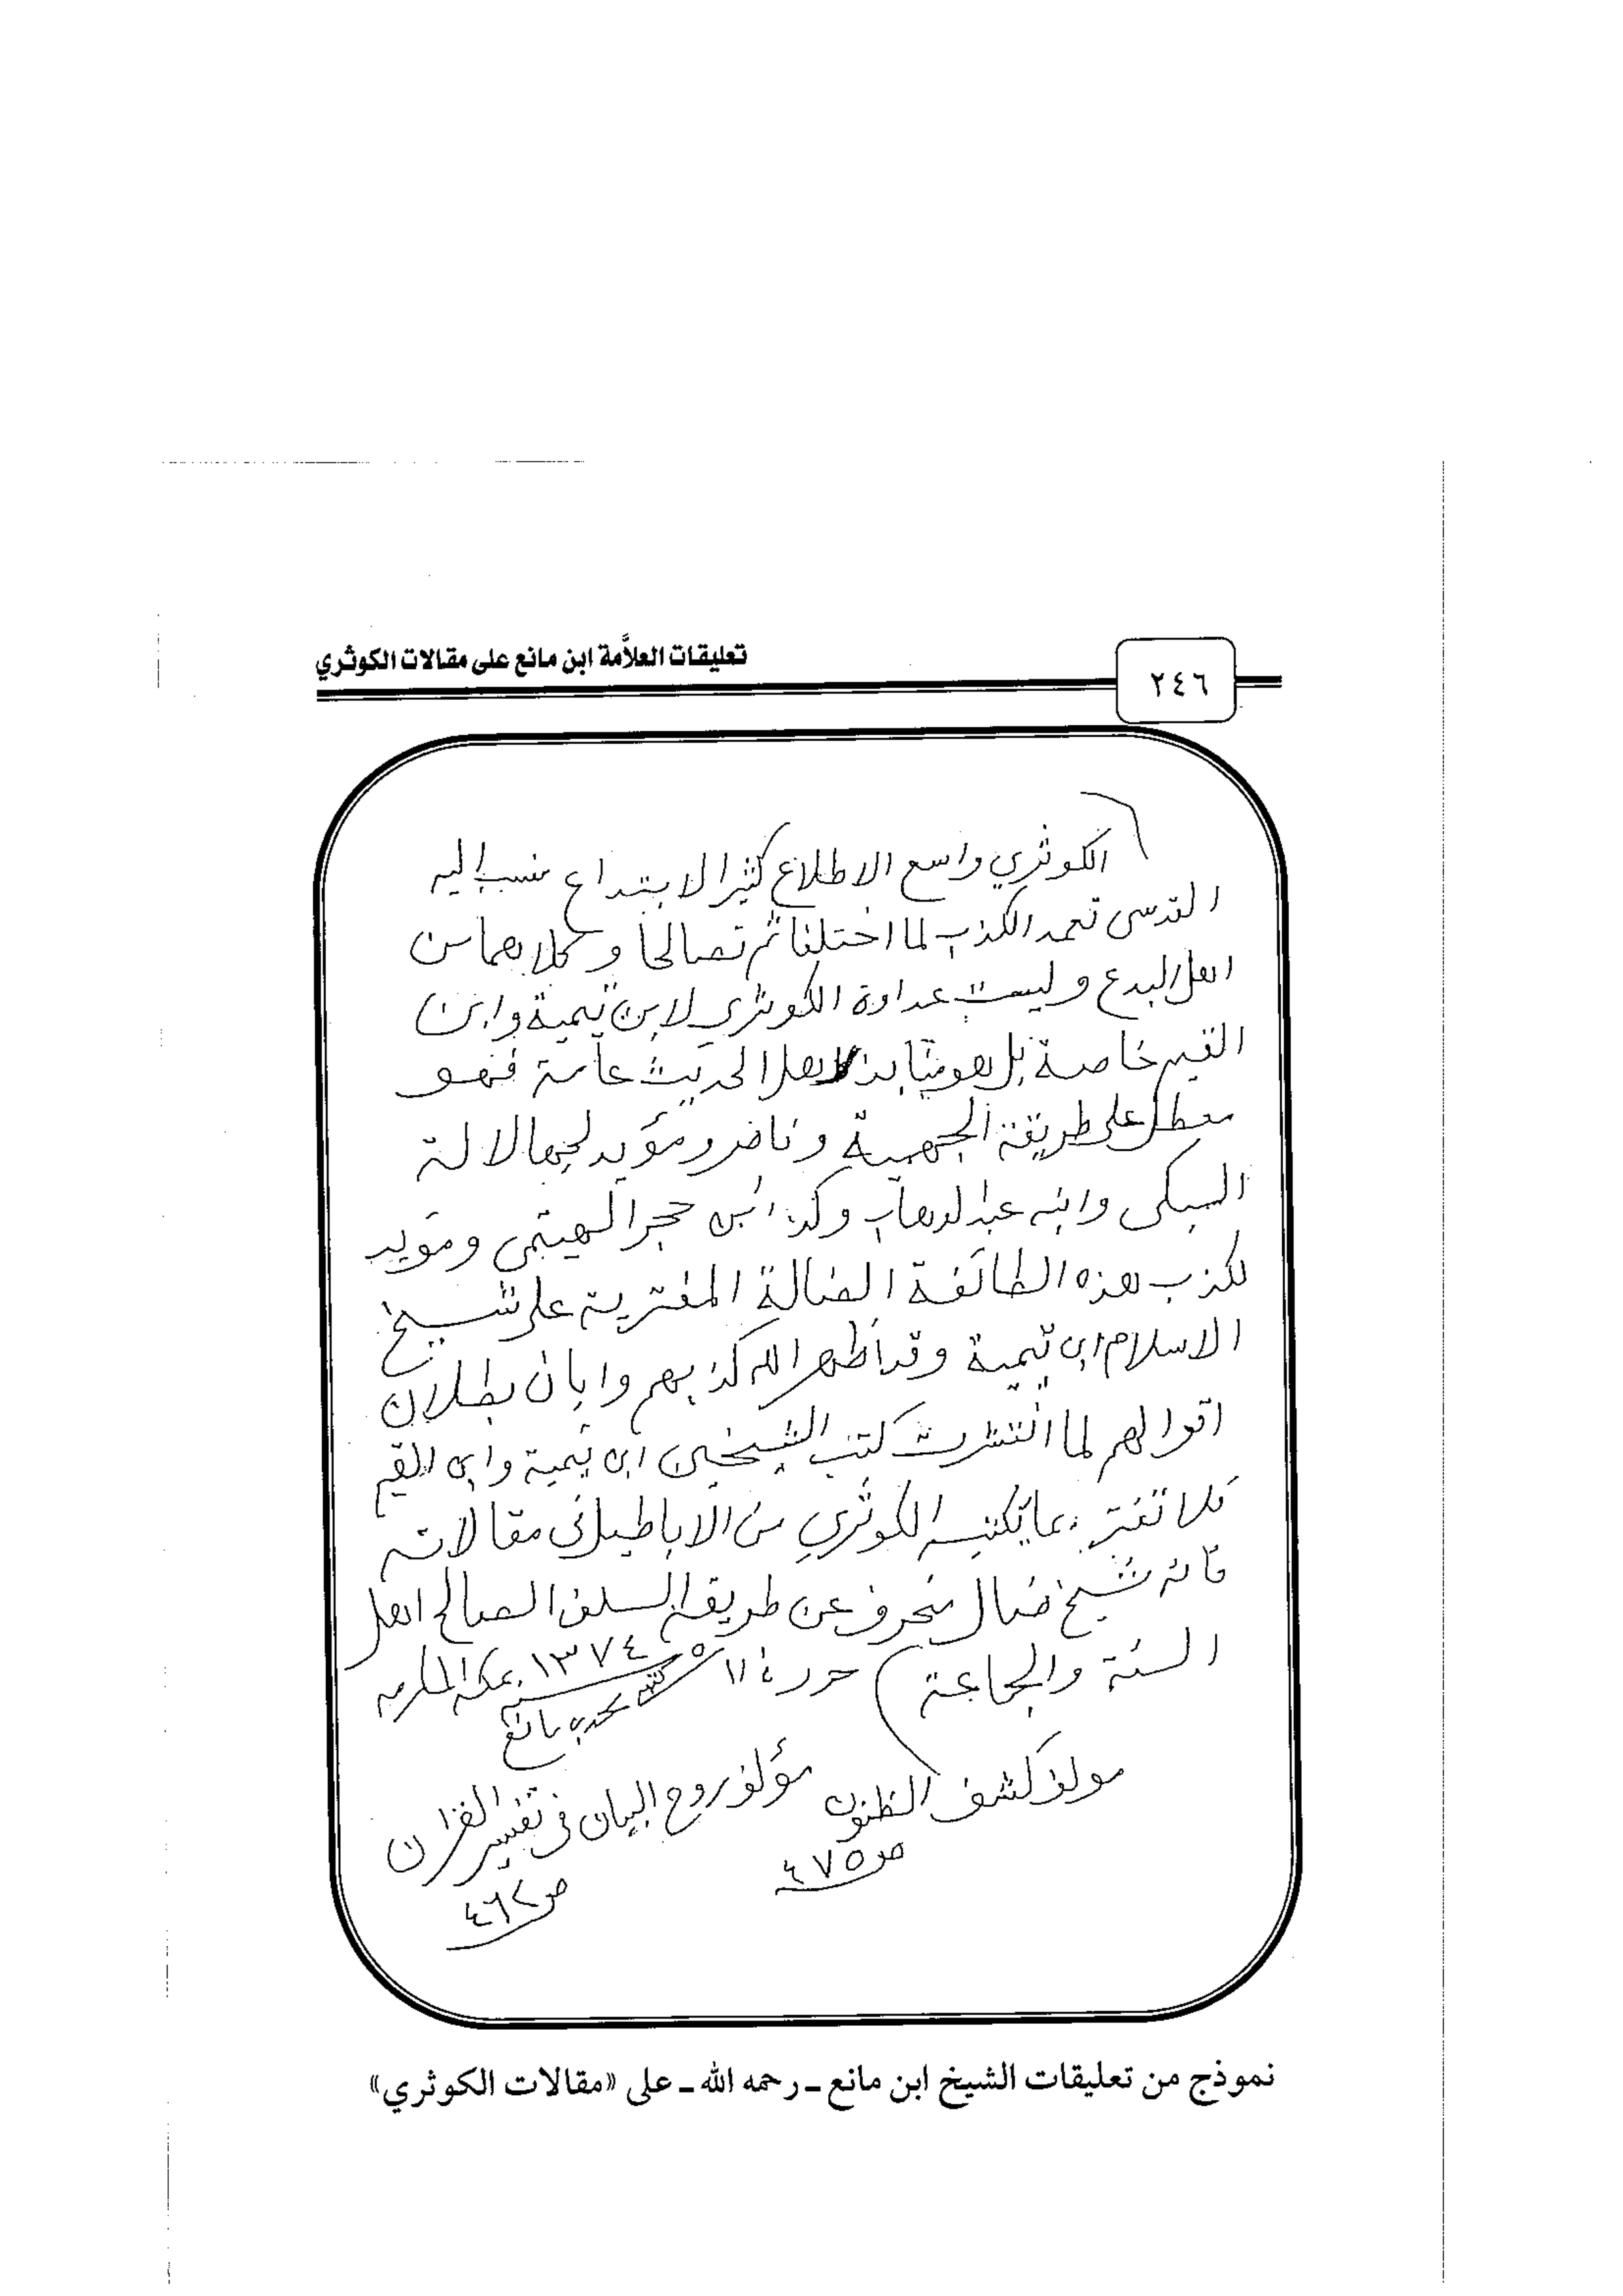 تعليقات العلاَّمة ابن مانع على مقالات الكوثري
٢٤٦
الكوثري واسع الاطلاع كثير الابتداع نسب اليه
القدسى تعمد الكذب لما اختلفا ثم تصالحا وكلاهما من
اهل البدع وليست عداوة الكوثري لابن تيمية وابن
القيم خاصة بل هو منابذ لاهل الحديث عامة فهو
معطل على طريقة الجهمية وناصر ومؤيد لجهالالة
السبكى وابنه عبدالوهاب وكذا ابن حجر الهيتمى ومؤيد
لكذب هذه الطائفة الضالة المفترية على شيخ
الاسلام ابن تيمية وقد أظهر الله كذبهم وابان بطلان
اقوالهم لما انتشرت كتب الشيخين ابن تيمية وابن القيم
فلا تغتر بما يكتبه الكوثري من الاباطيل فى مقالاته
فانه شيخ ضال منحرف عن طريقة السلف الصالح اهل
السنة والجماعة حرر فى ١١ ١٣٧٤ بمكة المكرمه
كتبه محمد بن مانع
مولف كشف الظنون مؤلف روح البيان فى تفسير القرآن
ص ٤٧٥
ص ٤٦٢
نموذج من تعليقات الشيخ ابن مانع ـ رحمه الله ـ على «مقالات الكوثري»